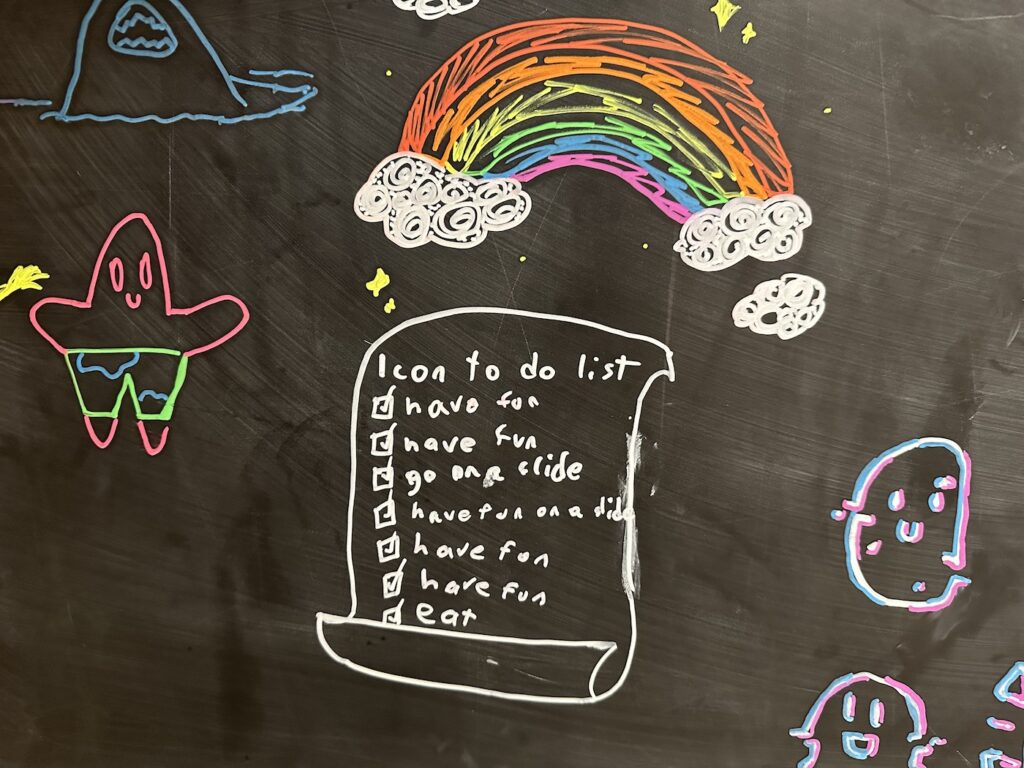 Icon to do list
have fun
have fun
go on a slide
have fun on a slide
have fun
have fun
eat